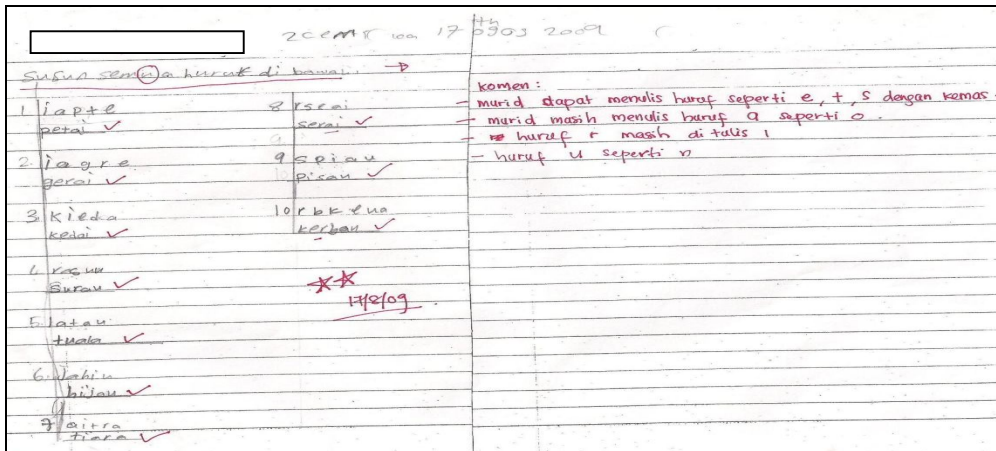 17 ogos 2009
Susun semua huruf di bawah
1. iapte
petai
2. iagre
gerai
3. kieda
kedai
4. rasuu
surau
5. latau
tuala
6.
hijau
7 aitra
tiara
8 rseai
serai
9 spiau
pisau
10 rbkeua
kerbau
17/8/09
komen :
- murid dapat menulis huruf seperti e, t, s dengan kemas.
- murid masih menulis huruf a seperti o.
- huruf r masih di tulis 1
- huruf u seperti n